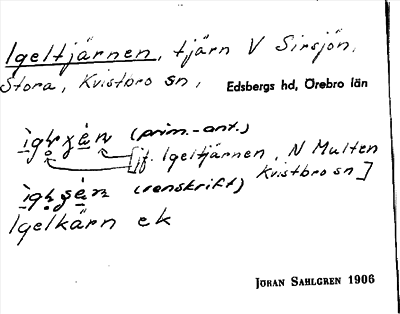 Igeltjärnen, tjärn V Sirsjön,
Stora, Kvistbro sn, Edsbergs hd, Örebro län
(prim.-ant.)
[jf. Igeltjärnen, N Multen
Kvistbro sn]
(renskrift)
Igelkärn ek
JÖRAN SAHLGREN 1906